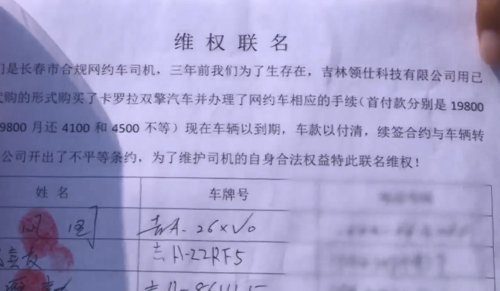 维权联名
们是长春市合规网约车司机，三年前我们为了生存在，吉林领仕科技有限公司用已
代购的形式购买了卡罗拉双擎汽车并办理了网约车相应的手续（首付款分别是 19800
9800 月还 4100 和 4500 不等）现在车辆以到期，车款以付清，续签合约与车辆转
公司开出了不平等条约，为了维护司机的自身合法权益特此联名维权！
姓名 车牌号
吉A-26XV0
吉A-22RF5